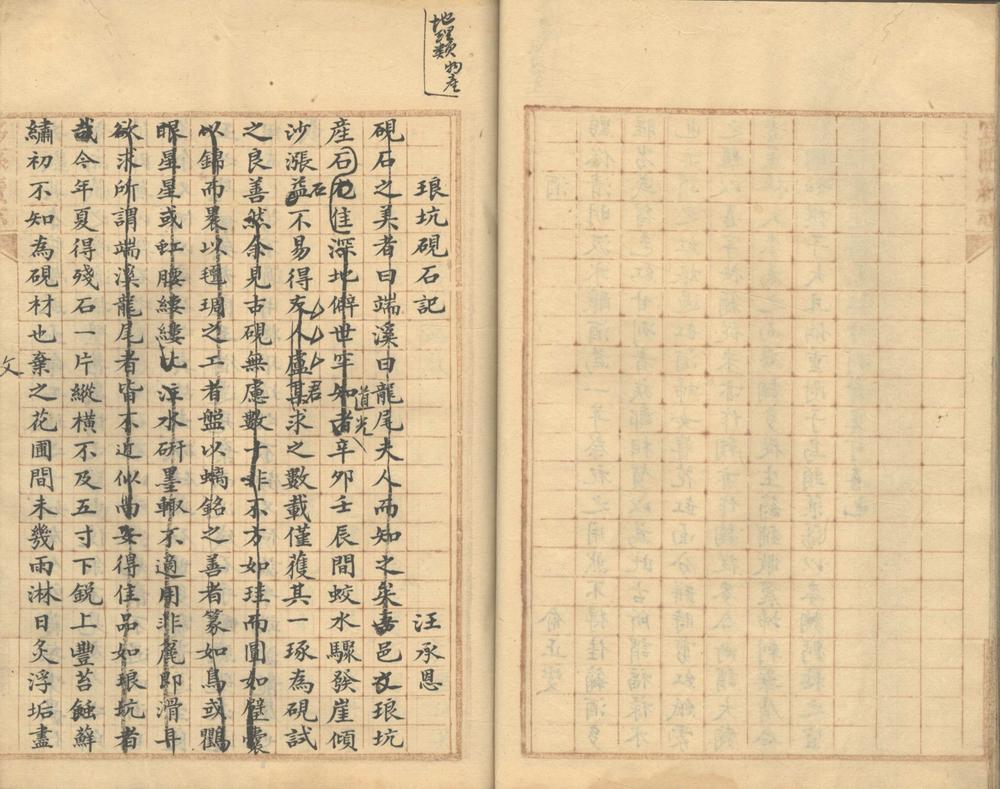 地理類物產
琅坑硯石記
汪承恩
硯石之美者曰端溪曰龍尾夫人而知之矣吾邑之琅坑
產石尤佳深地僻世罕知者辛卯壬辰間蛟水驟發崖傾
道光
沙漲益不易得友人盧某求之數載僅獲其一琢為硯試
石
君
之良善然余見古硯無慮數十非不方如珪而圓如璧囊
以錦而裹以氊琱之工者盤以螭銘之善者篆如鳥或鸜
眼星星或虹腰縷縷比注水研墨輒不適用非麄即滑耳
欲求所謂端溪龍尾者皆不近似尚安得佳品如琅坑者
哉今年夏得殘石一片縱橫不及五寸下銳上豐苔蝕蘚
繡初不知為硯材也棄之花圃間未幾雨淋日炙浮垢盡
文